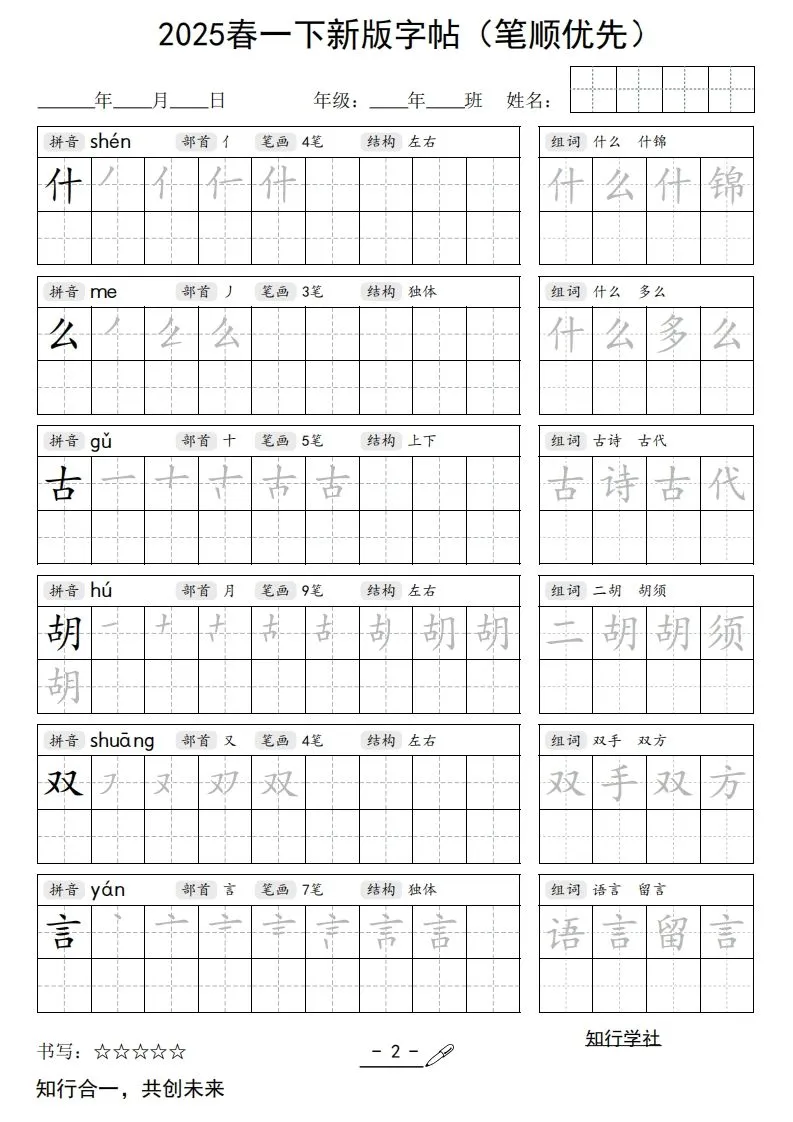 2025春一下新版字帖（笔顺优先）
______年____月____日 年级：____年____班 姓名：
拼音 shén 部首 亻 笔画 4笔 结构 左右 组词 什么 什锦
什 丿 亻 什 什 么 什 锦
拼音 me 部首 丿 笔画 3笔 结构 独体 组词 什么 多么
么 丿 么 什 么 多 么
拼音 gǔ 部首 十 笔画 5笔 结构 上下 组词 古诗 古代
古 一 十 古 古 诗 古 代
拼音 hú 部首 月 笔画 9笔 结构 左右 组词 二胡 胡须
胡 一 十 古 胡 二 胡 胡 须
胡
拼音 shuāng 部首 又 笔画 4笔 结构 左右 组词 双手 双方
双 フ 又 双 双 手 双 方
拼音 yán 部首 言 笔画 7笔 结构 独体 组词 语言 留言
言 丶 亠 言 语 言 留 言
书写：☆☆☆☆☆ - 2 - 知行学社
知行合一，共创未来